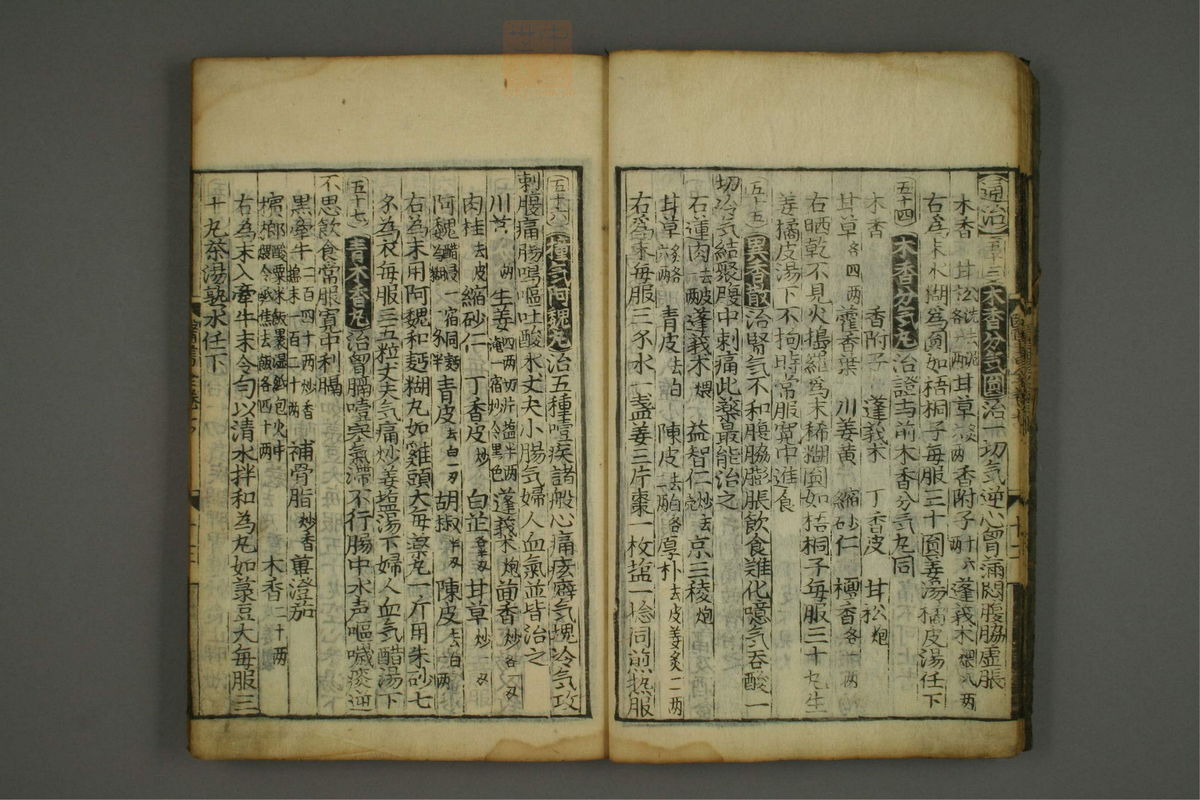 通治 五十三 木香分气圓 治一切气逆心胷滿悶腹脇虛脹
木香 甘松洗去泥各一两 甘草炙 两 香附子十六两 蓬莪术煨 两
右爲末水糊爲圓如梧桐子每服三十圓姜湯橘皮湯任下
五十四 木香分气丸 治證与前木香分气丸同
木香 香附子 蓬莪术 丁香皮 甘松炮
甘草各四两 藿香葉 川姜黄 縮砂仁 檀香各 两
右晒乾不見火搗羅爲末稀糊圓如梧桐子每服三十丸生
姜橘皮湯下不拘時常服寬中進食
五十五 異香散 治腎气不和腹脇膨脹飲食難化噫气吞酸一
切冷气結聚腹中刺痛此藥最能治之
石蓮肉去皮一两 蓬莪术煨 益智仁炒去壳 京三稜炮
甘草炙各 两 青皮去白 陳皮去白各 两 厚朴去皮姜炙二两
右爲末每服三錢水一盞姜三片棗一枚塩一捻同煎热服
五十六 撞气阿魏丸 治五種噎疾諸般心痛痃癖气塊冷气攻
刺腹痛腸鳴嘔吐酸水丈夫小腸气婦人血氣並皆治之
川芎 两 生姜四两切片塩半两淹一宿炒令黑色 蓬莪术炮 茴香炒各 两
肉桂去皮 縮砂仁 丁香皮炒 白芷各半两 甘草炒 两
阿魏醋浸一宿同麪爲糊 各半 青皮去白一两 胡椒半两 陳皮去白 两
右為末用阿魏和麪糊丸如雞頭大每藥丸一斤用朱砂七
錢為衣每服三五粒丈夫气痛炒姜塩湯下婦人血气醋湯下
五十七 青木香丸 治胷膈噎塞氣滯不行腸中水声嘔噦痰逆
不思飲食常服寬中利膈
黑牽牛二百四十两炒香搗末一百二十两 補骨脂炒香 蓽澄茄 木香二十两
檳榔酸粟米飯裹湿紙包火中煨令紙焦去飯各四十两
右為末入牽牛末令匀以清水拌和為丸如菉豆大每服三
十丸茶湯熟水任下